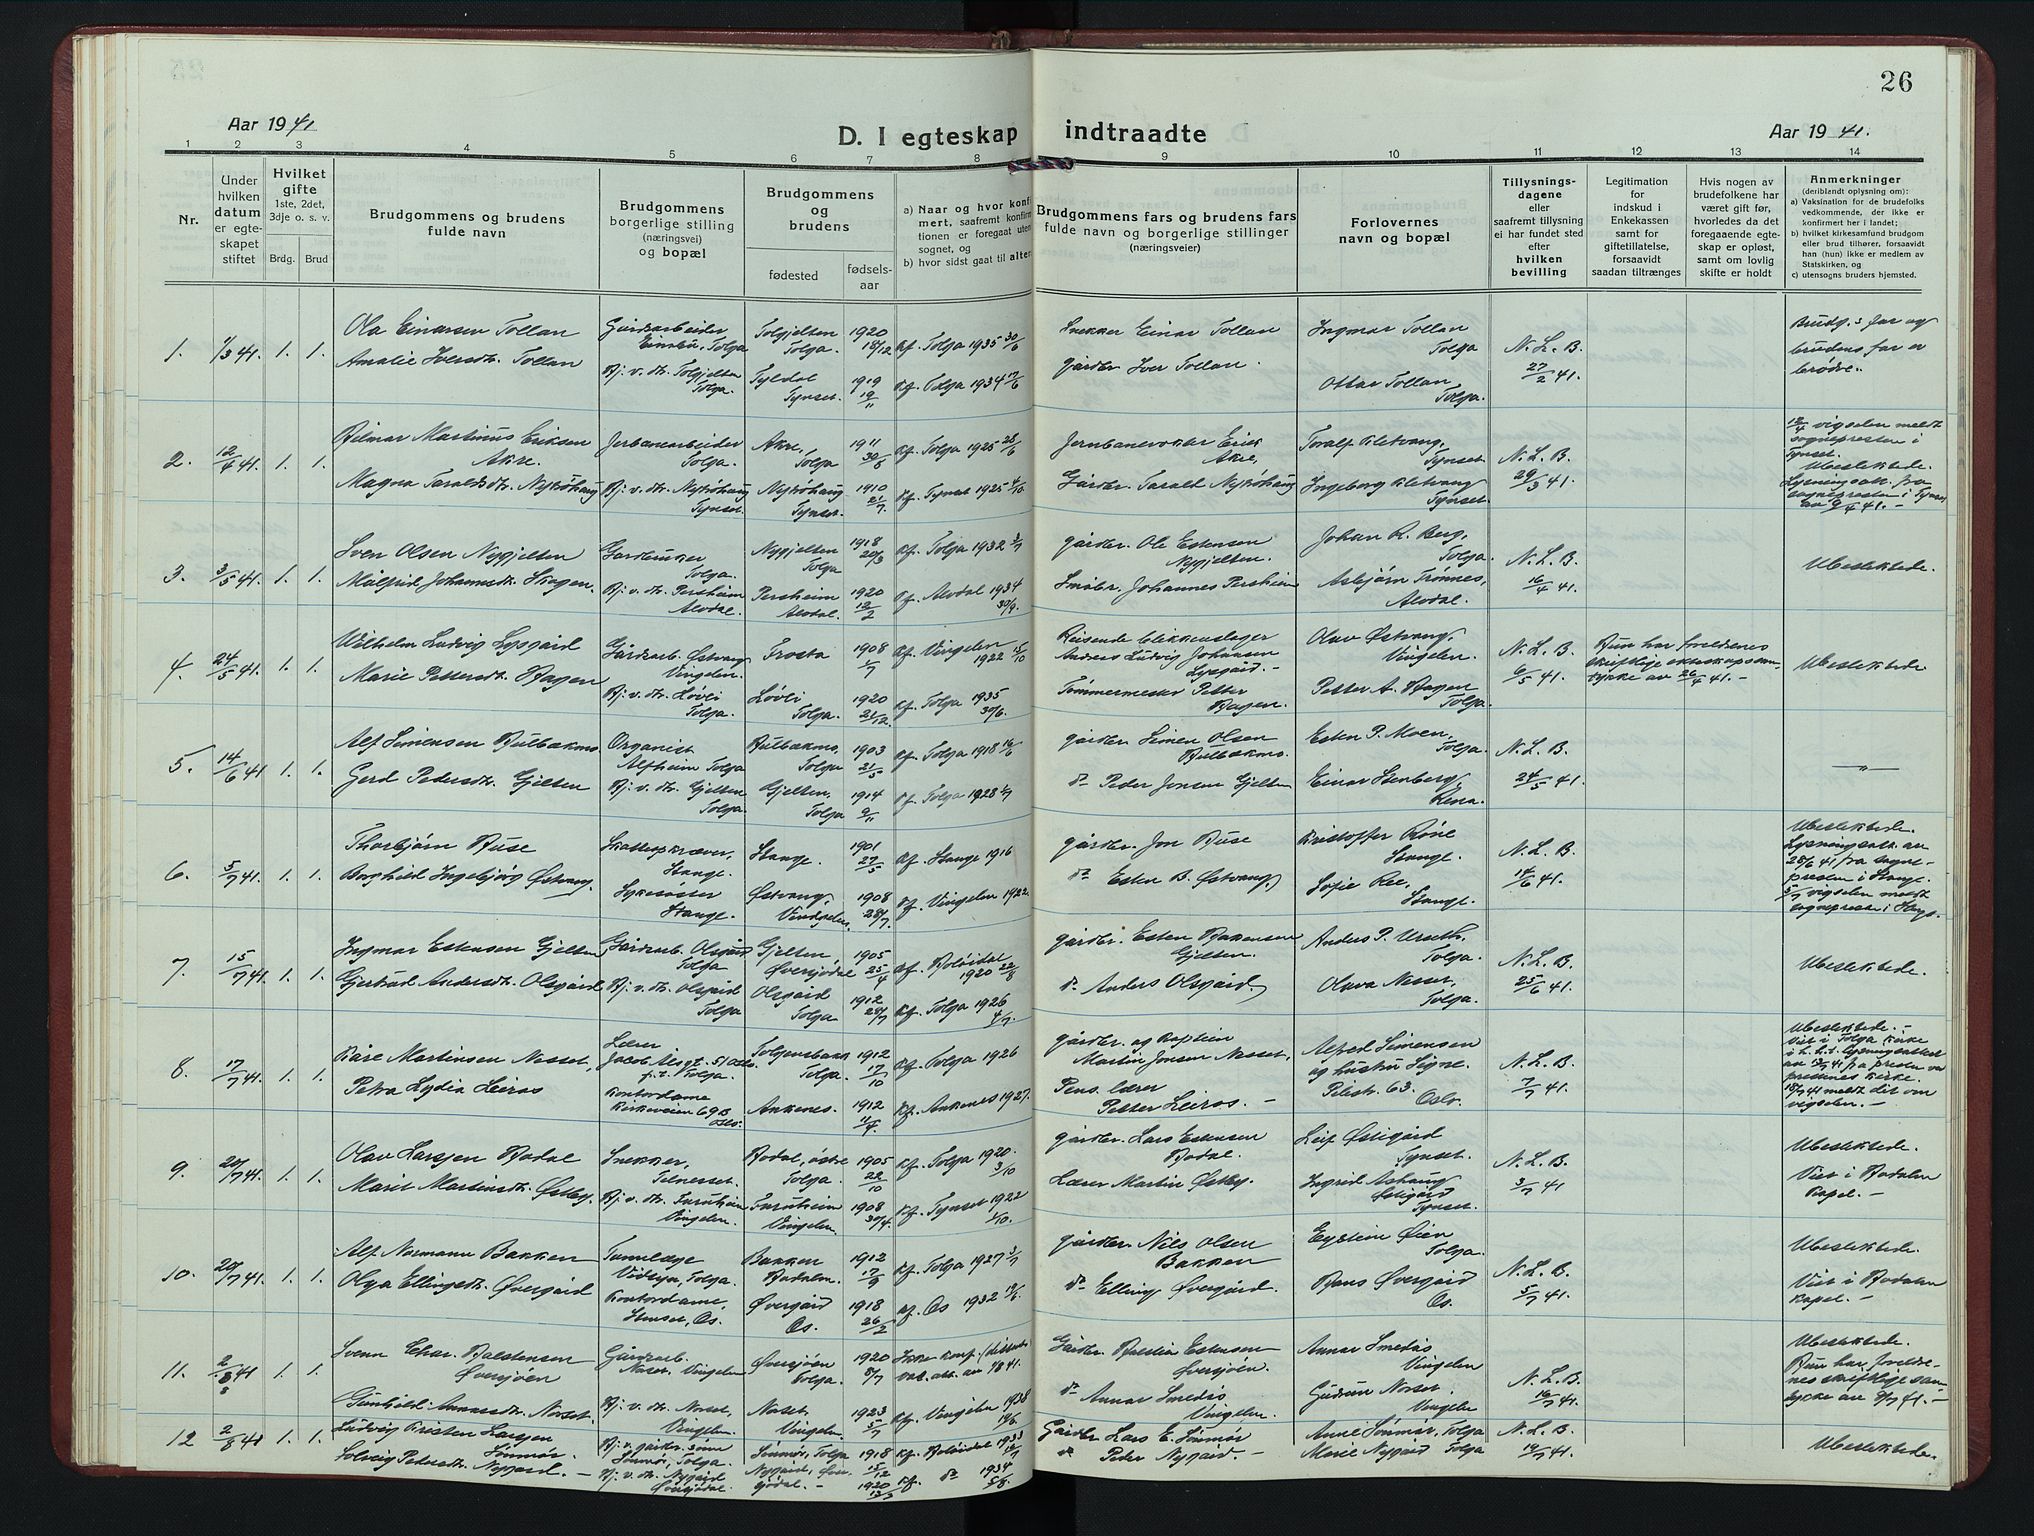 26
Aar 1941
D. I egteskap indtraadte
Aar 1941.
1 2 3 4 5 6 7 8 9 10 11 12 13 14
Nr.
Under hvilken datum er egteskapet stiftet
Hvilket gifte 1ste, 2det, 3dje o. s. v.
Brdg. Brud
Brudgommens og brudens fulde navn
Brudgommens borgerlige stilling (næringsvei) og bopæl
Brudgommens og brudens
fødested
fødsels-aar
a) Naar og hvor konfirmert, saafremt konfirmationen er foregaat utensognet, og
b) hvor sidst gaat til alters
Brudgommens fars og brudens fars fulde navn og borgerlige stillinger (næringsveier)
Forlovernes navn og bopæl
Tillysnings-dagene eller saafremt tillysning ei har fundet sted efter hvilken bevilling
Legitimation for indskud i Enkekassen samt for giftetillatelse, forsaavidt saadan tiltrænges
Hvis nogen av brudefolkene har været gift før, hvorledes da det foregaaende egteskap er opløst, samt om lovlig skifte er holdt
Anmerkninger (deriblandt oplysning om):
a) Vaksination for de brudefolks vedkommende, der ikke er konfirmert her i landet;
b) hvilket kirkesamfund brudgom eller brud tilhører, forsaavidt han (hun) ikke er medlem av Statskirken, og
c) utensogns bruders hjemsted.
1. 1/3 41. 1. 1. Ola Einarsen Tollan
Gårdsarbeider Tolga
Tolgjelten Tolga. 1920 18/12 kf. Tolga 1935 30/6
Snekker Einar Tollan
Ingmar Tollan Tolga
N. L. B. 27/2 41.
Brudg.s far og brudens far er brødre.
Amalie Iversdtr. Tollan
Hj. v. dtr. Tolgjelten Tolga.
Tyldal Tynset. 1919 19/11 kf. Tolga 1934 17/6
gårdbr. Iver Tollan.
Ottar Tollan, Tolga.
2. 12/4 41. 1. 1. Hilmar Martinus Eriksen Akre.
Jerbanearbeider Tolga.
Akre, Tolga 1911 30/8 kf. Tolga 1925 28/6
Jernbanevokter Erik Akre,
Toralf Kletvang, Tynset.
N. L. B. 29/3 41.
12/4 vigselen meldt sognepresten i Tynset.
Ubeslektede.
Lysningsatt. fra sognepresten i Tynset av 9/4 41. -
Magna Taraldsdtr. Nyrøhaug
Hj. v. dtr. Nyrøhaug Tynset.
Nyrøhaug Tynset. 1910 21/7 kf. Tynset 1925 4/10
Gårdbr. Tarald Nyrøhaug
Ingeborg Kletvang Tynset.
3. 3/5 41. 1. 1. Sven Olsen Nygjelten
Gardbruker Tolga.
Nygjelten Tolga 1918 20/3 kf. Tolga 1932 3/7
gårdbr. Ole Estensen Nygjelten.
Johan R. Berg, Tolga.
N. L. B. 16/4 41.
Ubeslektede.
Målfrid Johannesdtr. Skogen.
Hj. v. dtr. Persheim Alvdal.
Persheim Alvdal. 1920 12/2 kf. Alvdal 1934 30/9.
Småbr. Johannes Persheim
Asbjørn Trønnes, Alvdal.
4. 24/5 41. 1. 1. Wilhelm Ludvig Lysgård
Gårdsarb. Østvang Vingelen.
Frosta 1908 1/7 kf. Vingelen 1922 15/10
Reisende blikkenslager Anders Ludvig Johansen Lysgård. -
Olav Østvang, Vingelen.
N. L. B. 6/5 41.
Hun har foreldrenes skriftlige ekteskapssamtykke av 26/4 41. -
Ubeslektede
Marie Pettersdtr. Hagen
Hj. v. dtr. Løvli Tolga.
Løvli Tolga. 1920 21/12 kf. Tolga 1935 30/6.
Tømmermester Petter Hagen.
Petter A. Hagen Tolga.
5. 14/6 41 1. 1. Alf Simensen Hulbækmo
Organist Alfheim Tolga
Hulbækmo, Tolga 1903 21/5 kf. Tolga 1918 16/6
gårdbr. Simen Olsen Hulbækmo.
Esten P. Moen, Tolga.
N. L. B. 24/5 41.
— " —
Gerd Pedersdtr. Gjelten
Hj. v. dtr. Gjelten Tolga.
Gjelten, Tolga 1914 9/11 kf. Tolga 1928 1/7
do Peder Jonsen Gjelten
Einar Stenberg, Rena.
6. 5/7 41. 1. 1. Thorbjørn Huse
Skatteopkræver, Stange.
Stange. 1901 27/5 kf. Stange 1916
gårdbr. Jon Huse
Kristoffer Røne Stange.
N. L. B. 14/6 41.
Ubeslektede.
Lysningsatt. av 28/6 41 fra sognepresten i Stange.
5/7 vigselen meldt sogneprest i Stange.
Borghild Ingebjørg Østvang.
Sykesøster Stange.
Østvang, Vingelen. 1908 28/7 kf. Vingelen 1922.
do Esten B. Østvang.
Sofie Ree, Stange.
7. 15/7 41. 1. 1. Ingmar Estensen Gjelten
Gårdsarb. Olsgård Tolga
Gjelten, Øversjødal 1905 25/4 kf. Holøidal 1920 22/8
gårdbr. Esten Gjelten.
Anders P. Urseth, Tolga.
N. L. B. 25/6 41.
Ubeslektede.
Gjertrud Andersdtr. Olsgård
Hj. v. dtr. Olsgård Tolga
Olsgård Tolga 1912 28/7 kf. Tolga 1926 4/7.
do Anders Olsgård.
Olava Nesset, Tolga.
8. 17/7 41. 1. 1. Kåre Martinsen Nesset,
Lærer Jacob Aalsgt. 51 Oslo p.t. Tolga.
Tolgensbakk Tolga. 1912 17/10 kf. Tolga 1926
gårdbr. og kaptein Martin Jonsen Nesset,
Alfred Simensen og hustru Signe. Pilestr. 63. Oslo.
N. L. B. 7/7 41.
Ubeslektede. -
Viet i Tolga kirke
18/7 41 meldt dit om vigselen. -
Petra Lydia Leiros
Kontordame Kirkeveien 69B Oslo.
Ankenes. 1912 1/4. kf. Ankenes 1927.
Pens. lærer Petter Leiros. -
9. 20/7 41. 1. 1. Olav Larsen Hodal
Snekker, Telneset.
Hodal, østre Tolga. 1905 22/10 kf. Tolga 1920. 3/10
gårdbr. Lars Estensen Hodal.
Leif Østigård Tynset.
N. L. B. 3/7 41
Ubeslektede.
Viet i Hodalen kapel. -
Marit Martinsdtr. Østby.
Hj. v. dtr. Furuheim Vingelen.
Furuheim Vingelen. 1908 30/4. kf. Tynset 1922 1/10.
Lærer Martin Østby.
Ingrid Ashaug Østigård Tynset.
10. 20/7 41. 1. 1. Alf Normann Bakken
Tannlæge Vidsyn, Tolga.
Bakken Hodalen. 1912 17/9 kf. Tolga 1927 3/7
gårdbr. Nils Olsen Bakken
Eystein Øien Tolga.
N. L. B. 5/7 41.
Ubeslektede.
Viet i Hodalen kapel. -
Olga Ellingsdtr. Øvergård
Kontordame, Os.
Øvergård Os. 1918 26/2 kf. Os 1932 19/6.
do Elling Øvergård.
Hans Øvergård Os.
11. 2/8 41 1. 1. Svenn Char. Halstensen Øversjøen
Gårdsarb. Noset, Vingelen
Øversjøen Tolga. 1920 8/7 Ikke konf. (dissenter) vac. att. av 1/8 41.
Gårdbr. Halstein Estensen Øversjøen.
Annar Smedås Vingelen
N. L. B. 16/7 41.
Ubeslektede.
Hun har foreldrenes skriftlige samtykke av 9/7 41. -
Gunhild Annarsdtr. Norset.
Hj. v. dtr. Noset, Vingelen.
Noset Vingelen. 1923 5/7 kf. Vingelen 1938 19/6.
do Annar Smedås Vingelen.
Gudrun Norset. Vingelen
12 2/8 41 1. 1. Ludvig Kristen Larsen Sønmør.
Hj. v. gårdbr. sønn Sønmør, Tolga.
Sønmør, Tolga 1918 15/12 kf. Holøidal 1933
Gårdbr. Lars E. Sønmør
Anne Sønmør, Tolga
N. L. B. 19/7 41.
Ubeslektede.
Solveig Pedersdtr. Nygård. -
Hj. v. dtr. Nygård Øversjødal.
Nygård, Øversjødal. - 1920 kf. do 1934
do Peder Nygård. -
Marie Nygård Tolga